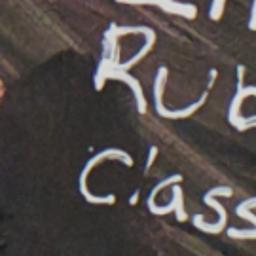 Rub
Class